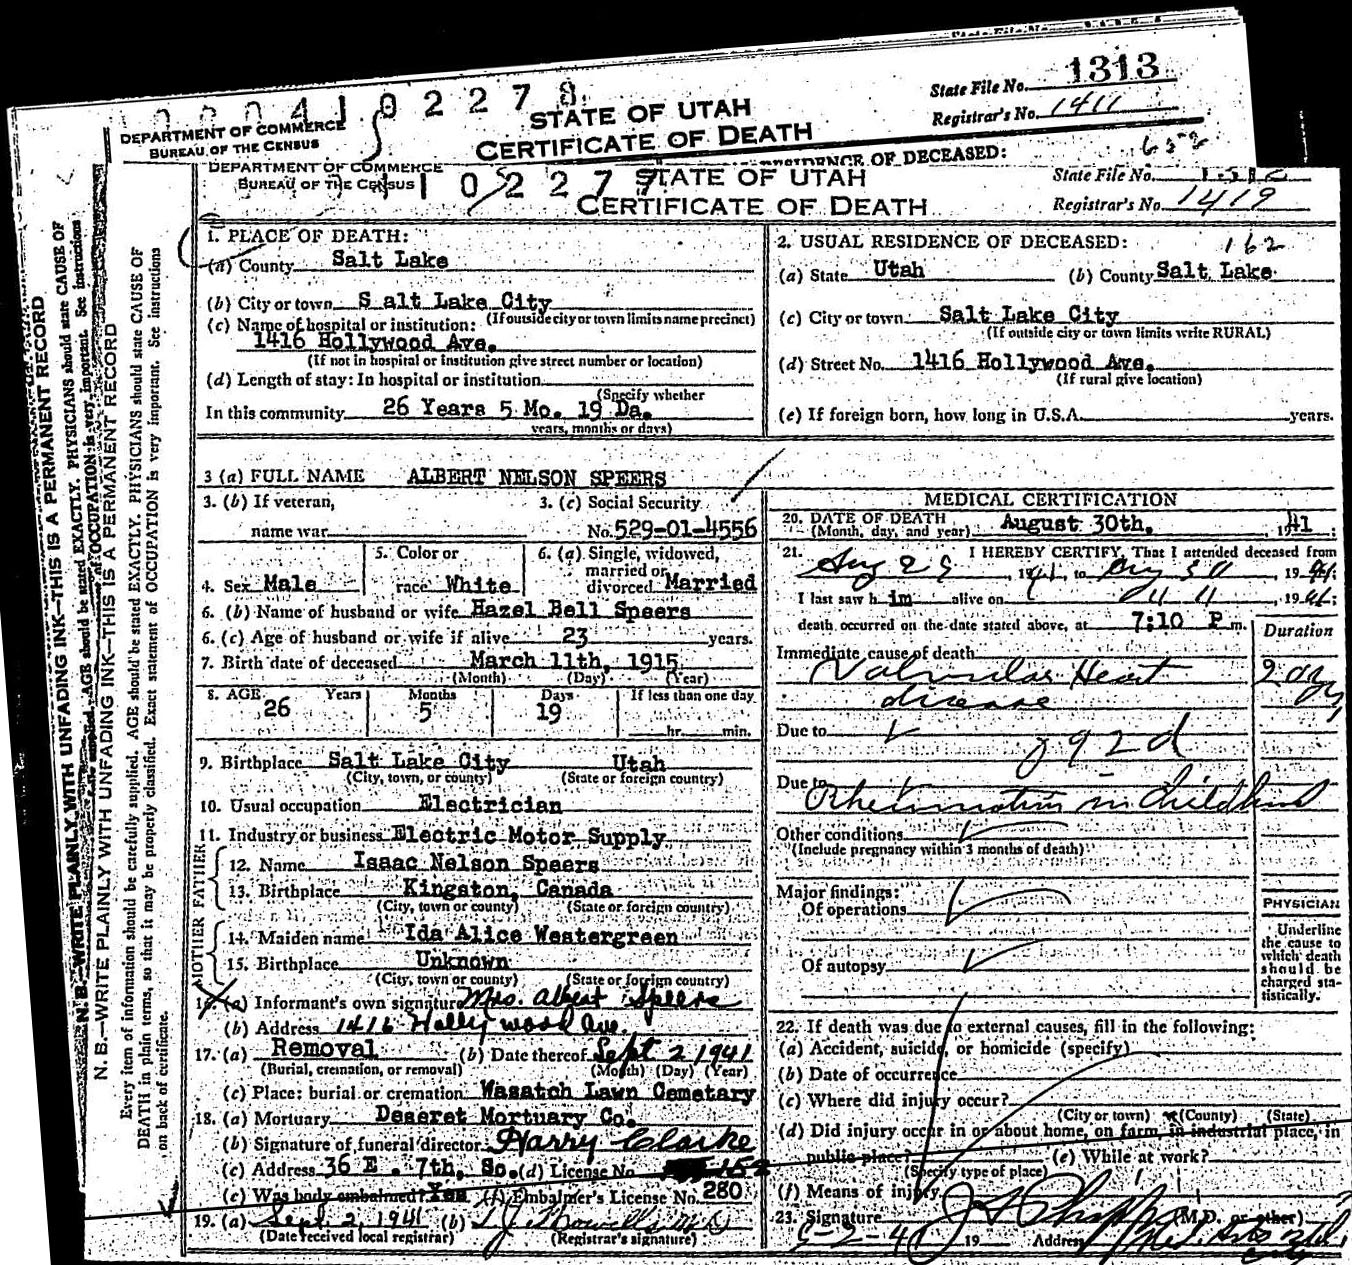 State File No. 1313
0 0 0 4 1 0 2 2 7 8
STATE OF UTAH
CERTIFICATE OF DEATH
Registrar's No. 1411
DEPARTMENT OF COMMERCE
BUREAU OF THE CENSUS
RESIDENCE OF DECEASED:
652
DEPARTMENT OF COMMERCE
BUREAU OF THE CENSUS
1 0 2 2 7 7
STATE OF UTAH
CERTIFICATE OF DEATH
State File No.
Registrar's No. 1419
N. B.—WRITE PLAINLY WITH UNFADING INK—THIS IS A PERMANENT RECORD
AGE should be stated EXACTLY. PHYSICIANS should state CAUSE OF
of OCCUPATION is very important. See instructions
N. B.—WRITE PLAINLY WITH UNFADING INK—THIS IS A PERMANENT RECORD
Every item of information should be carefully supplied. AGE should be stated EXACTLY. PHYSICIANS should state CAUSE OF
DEATH in plain terms, so that it may be properly classified. Exact statement of OCCUPATION is very important. See instructions
on back of certificate.
1. PLACE OF DEATH:
(a) County Salt Lake
(b) City or town S alt Lake City
(If outside city or town limits name precinct)
(c) Name of hospital or institution:
1416 Hollywood Ave.
(If not in hospital or institution give street number or location)
(d) Length of stay: In hospital or institution
(Specify whether
In this community 26 Years 5 Mo. 19 Da.
years, months or days)
2. USUAL RESIDENCE OF DECEASED: 162
(a) State Utah (b) County Salt Lake
(c) City or town Salt Lake City
(If outside city or town limits write RURAL)
(d) Street No. 1416 Hollywood Ave.
(If rural give location)
(e) If foreign born, how long in U.S.A. years.
3 (a) FULL NAME ALBERT NELSON SPEERS
3. (b) If veteran,
name war
3. (c) Social Security
No. 529-01-4556
4. Sex Male
5. Color or
race White
6. (a) Single, widowed,
married or
divorced Married
6. (b) Name of husband or wife Hazel Bell Speers
6. (c) Age of husband or wife if alive 23 years.
7. Birth date of deceased March 11th, 1915
(Month) (Day) (Year)
8. AGE Years Months Days If less than one day
26 5 19
hr. min.
9. Birthplace Salt Lake City Utah
(City, town, or county) (State or foreign country)
10. Usual occupation Electrician
11. Industry or business Electric Motor Supply
FATHER
12. Name Isaac Nelson Speers
13. Birthplace Kingston, Canada
(City, town or county) (State or foreign country)
MOTHER
14. Maiden name Ida Alice Westergreen
15. Birthplace Unknown
(City, town or county) (State or foreign country)
16. (a) Informant's own signature Mrs. Albert Speers
(b) Address 1416 Hollywood Ave.
17. (a) Removal (b) Date thereof Sept 2 1941
(Burial, cremation, or removal) (Month) (Day) (Year)
(c) Place: burial or cremation Wasatch Lawn Cemetary
18. (a) Mortuary Deseret Mortuary Co.
(b) Signature of funeral director Harry Clarke
(c) Address 36 E. 7th. So. (d) License No. 152
(e) Was body embalmed? Yes (f) Embalmer's License No. 280
19. (a) Sept. 2, 1941 (b) T J Howells M D
(Date received local registrar) (Registrar's signature)
MEDICAL CERTIFICATION
20. DATE OF DEATH August 30th, 1941;
(Month, day, and year)
21. I HEREBY CERTIFY, That I attended deceased from
Aug 29, 1941, to Aug 30, 1941;
I last saw h im alive on 11 11, 1941;
death occurred on the date stated above, at 7:10 P m.
Duration
Immediate cause of death
Valvular Heart
disease
Due to
92d
Due to
Rheumatism in Childhood
Other conditions
(Include pregnancy within 3 months of death)
Major findings:
Of operations
Of autopsy
PHYSICIAN
Underline
the cause to
which death
should be
charged sta-
tistically.
22. If death was due to external causes, fill in the following:
(a) Accident, suicide, or homicide (specify)
(b) Date of occurrence
(c) Where did injury occur?
(City or town) (County) (State)
(d) Did injury occur in or about home, on farm, in industrial place, in
public place? (e) While at work?
(Specify type of place)
(f) Means of injury
23. Signature (M.D. or other)
9-2-41 19 Address